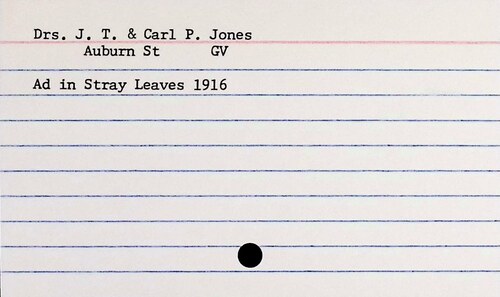 Drs. J. T. & Carl P. Jones
Auburn St GV
Ad in Stray Leaves 1916